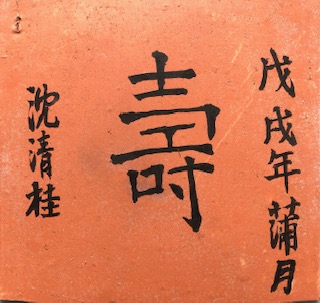 戊戌年蒲月
壽
沈清桂